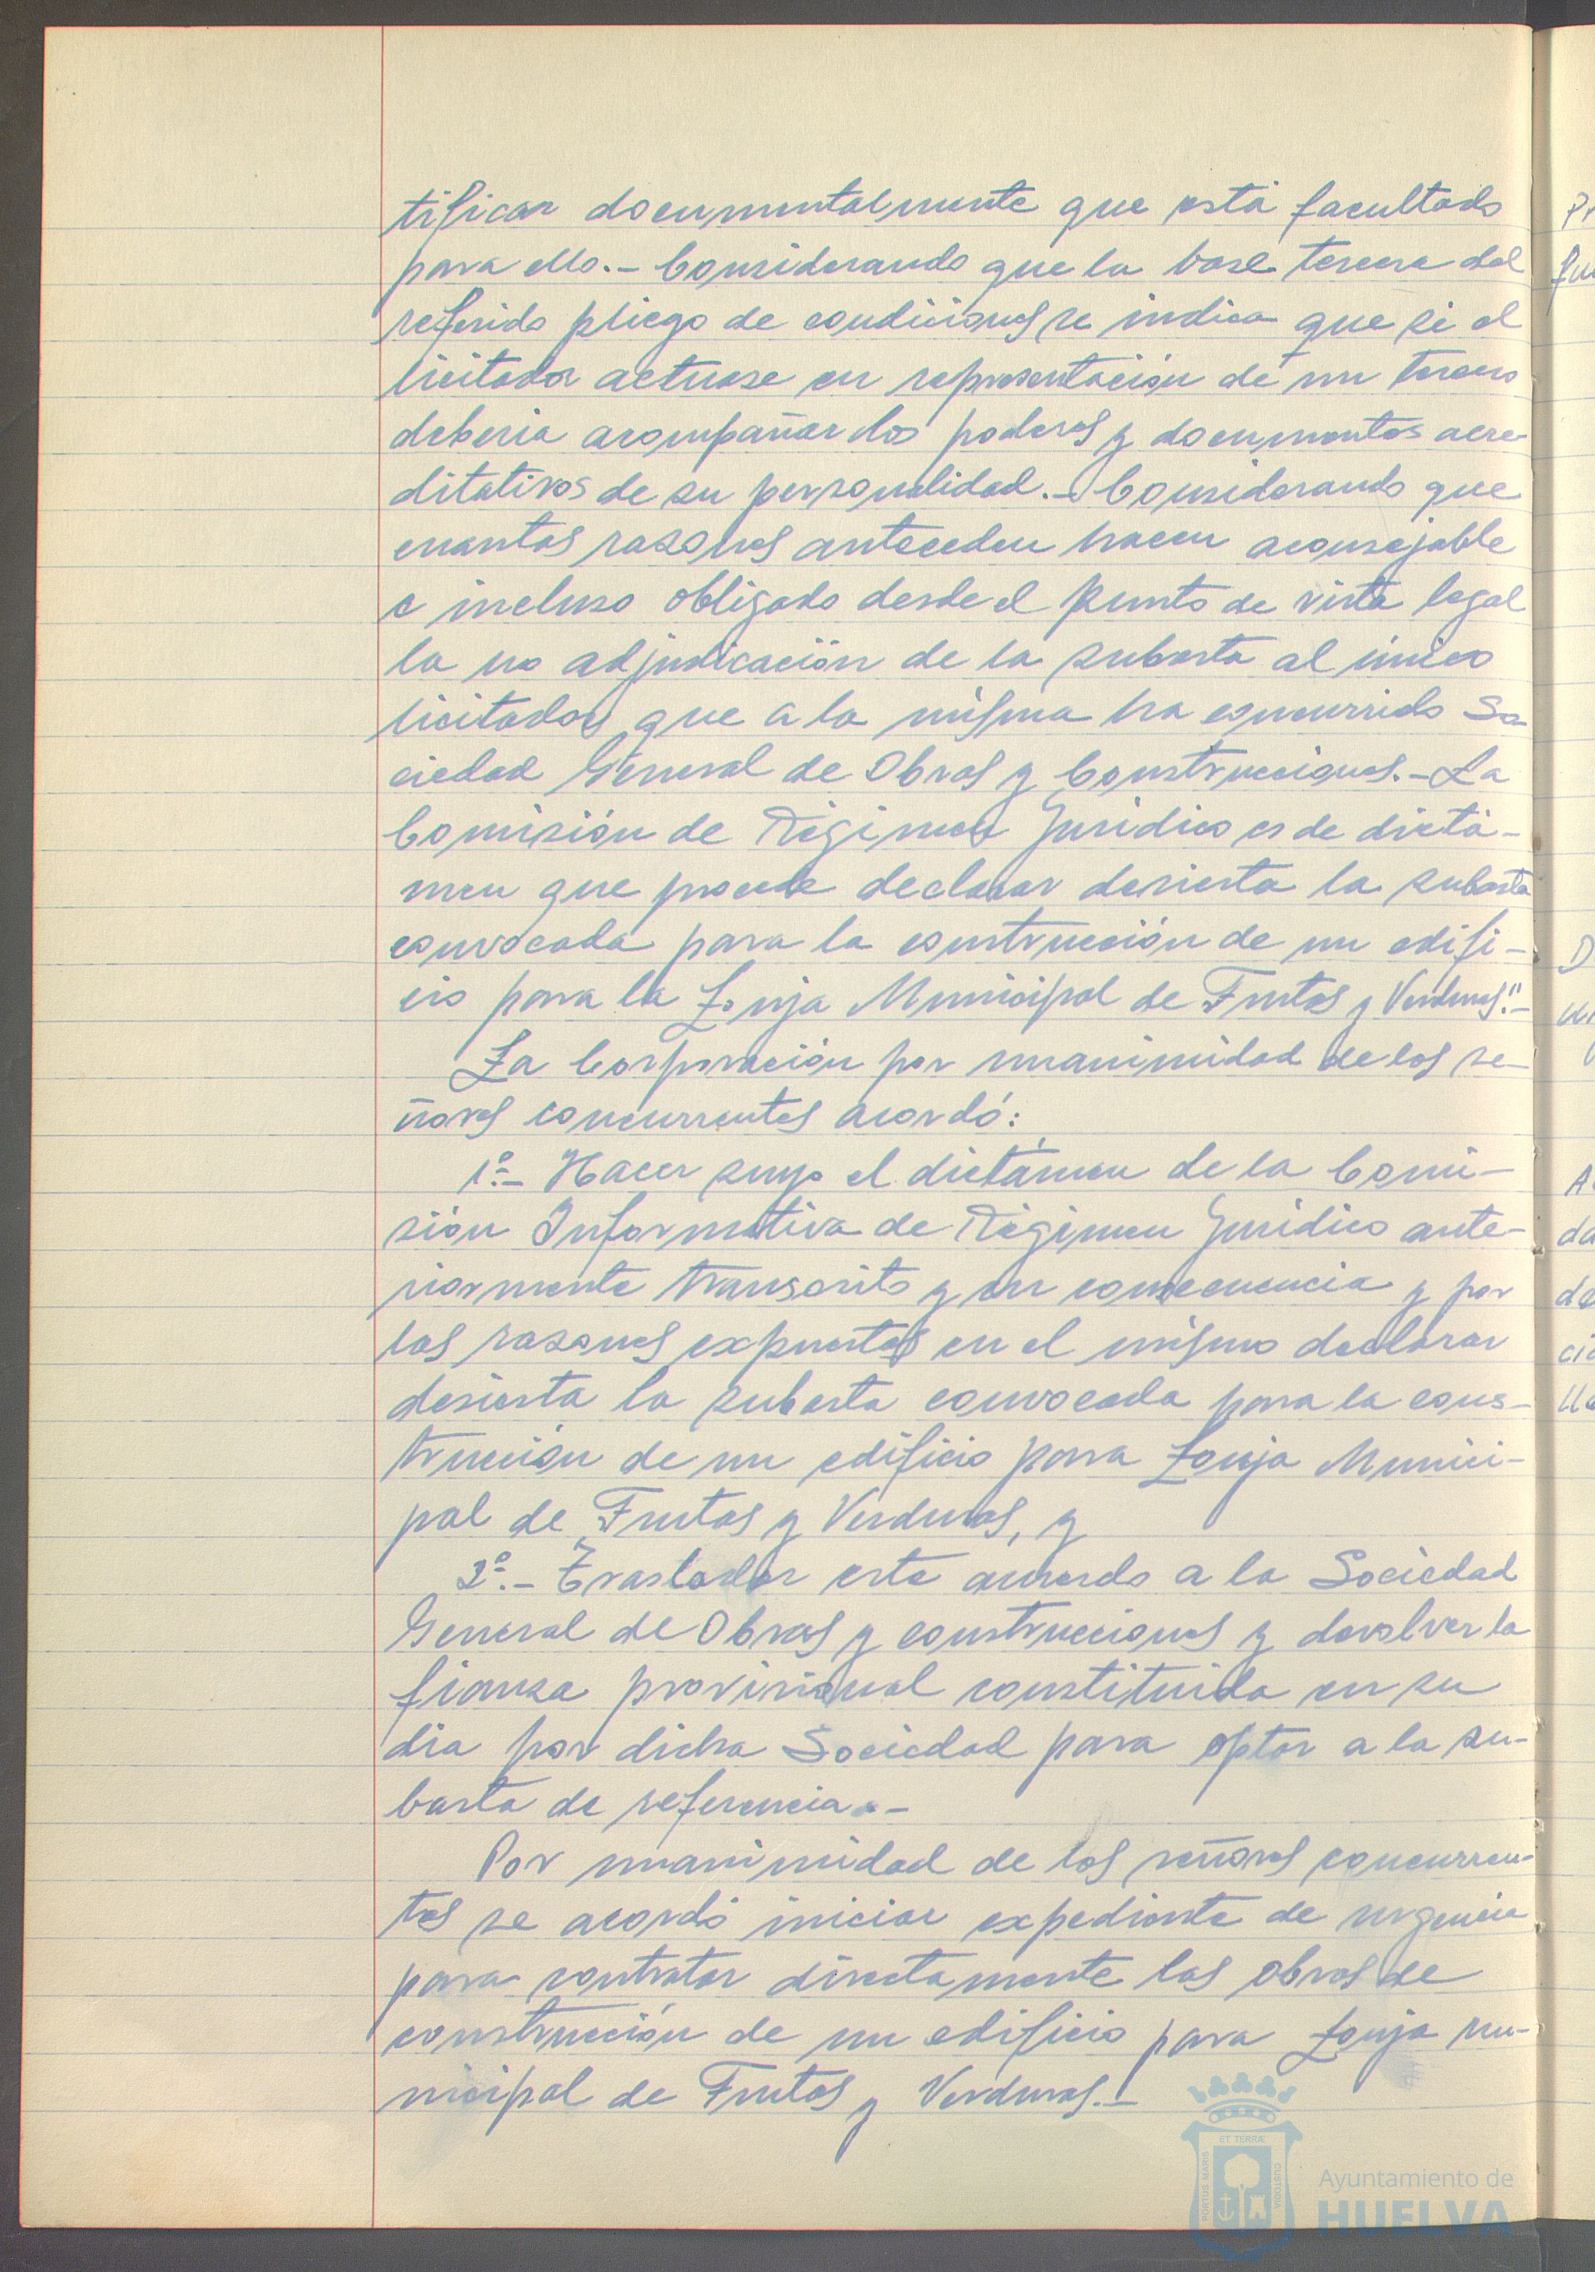 tificar documentalmente que está facultado
para ello.- Considerando que la base tercera del
referido pliego de condiciones se indica que si el
licitador actuase en representación de un tercero
deberia acompañar los poderes y documentos acre-
ditativos de su personalidad.- Considerando que
cuantas razones anteceden hacen aconsejable
e incluso obligado desde el punto de vista legal
la no adjudicación de la subasta al único
licitador que a la misma ha concurrido So-
ciedad General de Obras y Construcciones.- La
Comisión de Régimen Juridico es de dictá-
men que procede declarar desierta la subasta
convocada para la construcción de un edifi-
cio para la Lonja Municipal de Frutas y Verduras".-
La Corporación por unanimidad de los se-
ñores concurrentes acordó:
1º.- Hacer suyo el dictámen de la Comi-
sión Informativa de Régimen Juridico ante-
riormente transcrito y en consecuencia y por
las razones expuestas en el mismo declarar
desierta la subasta convocada para la cons-
trucción de un edificio para Lonja Munici-
pal de Frutas y Verduras, y
2º.- Trasladar este acuerdo a la Sociedad
General de Obras y construcciones y devolver la
fianza provisional constituida en su
dia por dicha Sociedad para optar a la su-
basta de referencia.-
Por unanimidad de los señores concurren-
tes se acordó iniciar expediente de urgencia
para contratar directamente las obras de
construcción de un edificio para Lonja mu-
nicipal de Frutas y Verduras.-
ET TERRÆ
PORTUS MARIS
CUSTODIA
Ayuntamiento de
HUELVA